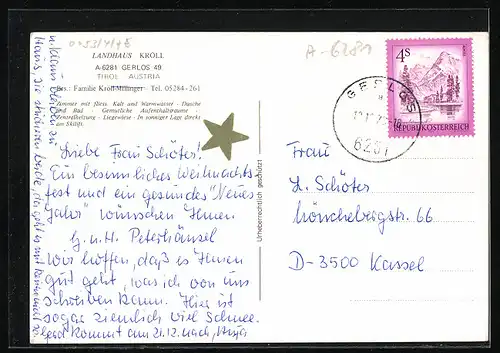 0-53/4/45
LANDHAUS KRÖLL
A-6281 GERLOS 49
TIROL AUSTRIA
Bes.: Familie Kröll-Millinger - Tel. 05284-261
Zimmer mit fließ. Kalt und Warmwasser - Dusche
und Bad - Gemütliche Aufenthaltsräume
Zentralheizung - Liegewiese - In sonniger Lage direkt
am Skilift.
Liebe Frau Schöter!
Ein besinnliches Weihnachts-
fest und ein gesundes "Neues
Jahr" wünschen Ihnen
G. u. H. Peterhänsel
Wir hoffen, daß es Ihnen
gut geht, was ich von uns
schreiben kann. Hier ist
sogar ziemlich viel Schnee.
Gerd kommt am 21.12. nach,
u. Klaus bleiben zu
Haus, die
Urheberrechtlich geschützt
A-6281
GERLOS
6281
4S
REPUBLIK ÖSTERREICH
Frau
L. Schöter
Mönchebergstr. 66
D-3500 Kassel